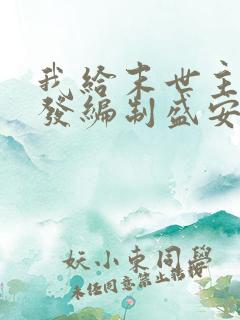 我給末世主
發編制盛安
妖小東同學
未經同意禁止轉載